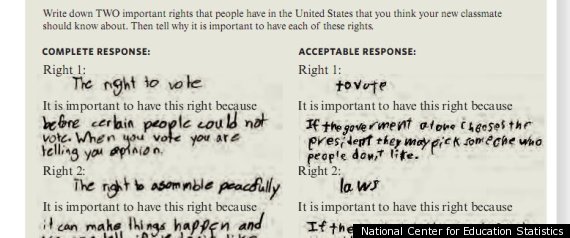 Write down TWO important rights that people have in the United States that you think your new classmate
should know about. Then tell why it is important to have each of these rights.
COMPLETE RESPONSE:
Right 1:
The right to vote
It is important to have this right because
before certain people could not
vote. When you vote you are
telling you opinion.
Right 2:
The right to asommble peacfully
It is important to have this right because
it can make things happen and
ACCEPTABLE RESPONSE:
Right 1:
to vote
It is important to have this right because
If the goverment alone chooses the
president they may pick someone who
people don't like.
Right 2:
laws
It is important to have this right because
If the
National Center for Education Statistics